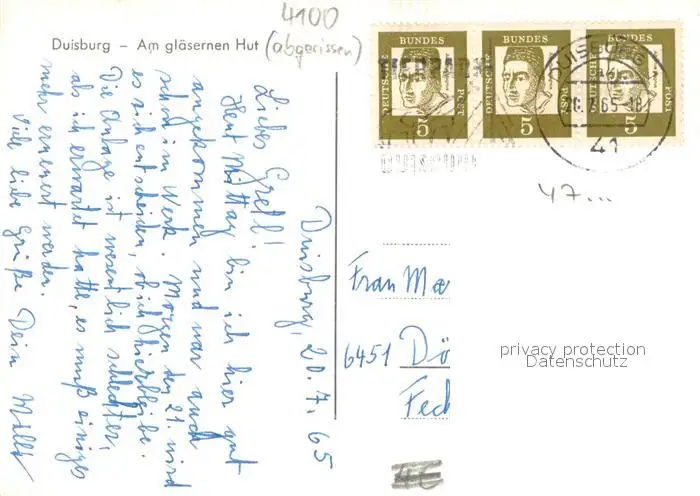 4100
Duisburg – Am gläsernen Hut (abgerissen)
Duisburg, 20.7.65
Liebes Gretl!
Heut Mittag bin ich hier gut
angekommen und war auch
schon im Werk. Morgen den 21. wird
es sich entscheiden, ob ich hierbleibe.
Die Anlage ist wesentlich schlechter,
als ich erwartet hatte, es muß einiges
mehr erneuert werden.
Viele liebe Grüße Dein Willi
DEUTSCHE BUNDES POST 5
DEUTSCHE BUNDES POST 5
DEUTSCHE BUNDES POST 5
DUISBURG
.7.65-18
41
DUISBURG
47...
Frau Mae
6451 Dö
Fech
privacy protection
Datenschutz
4€